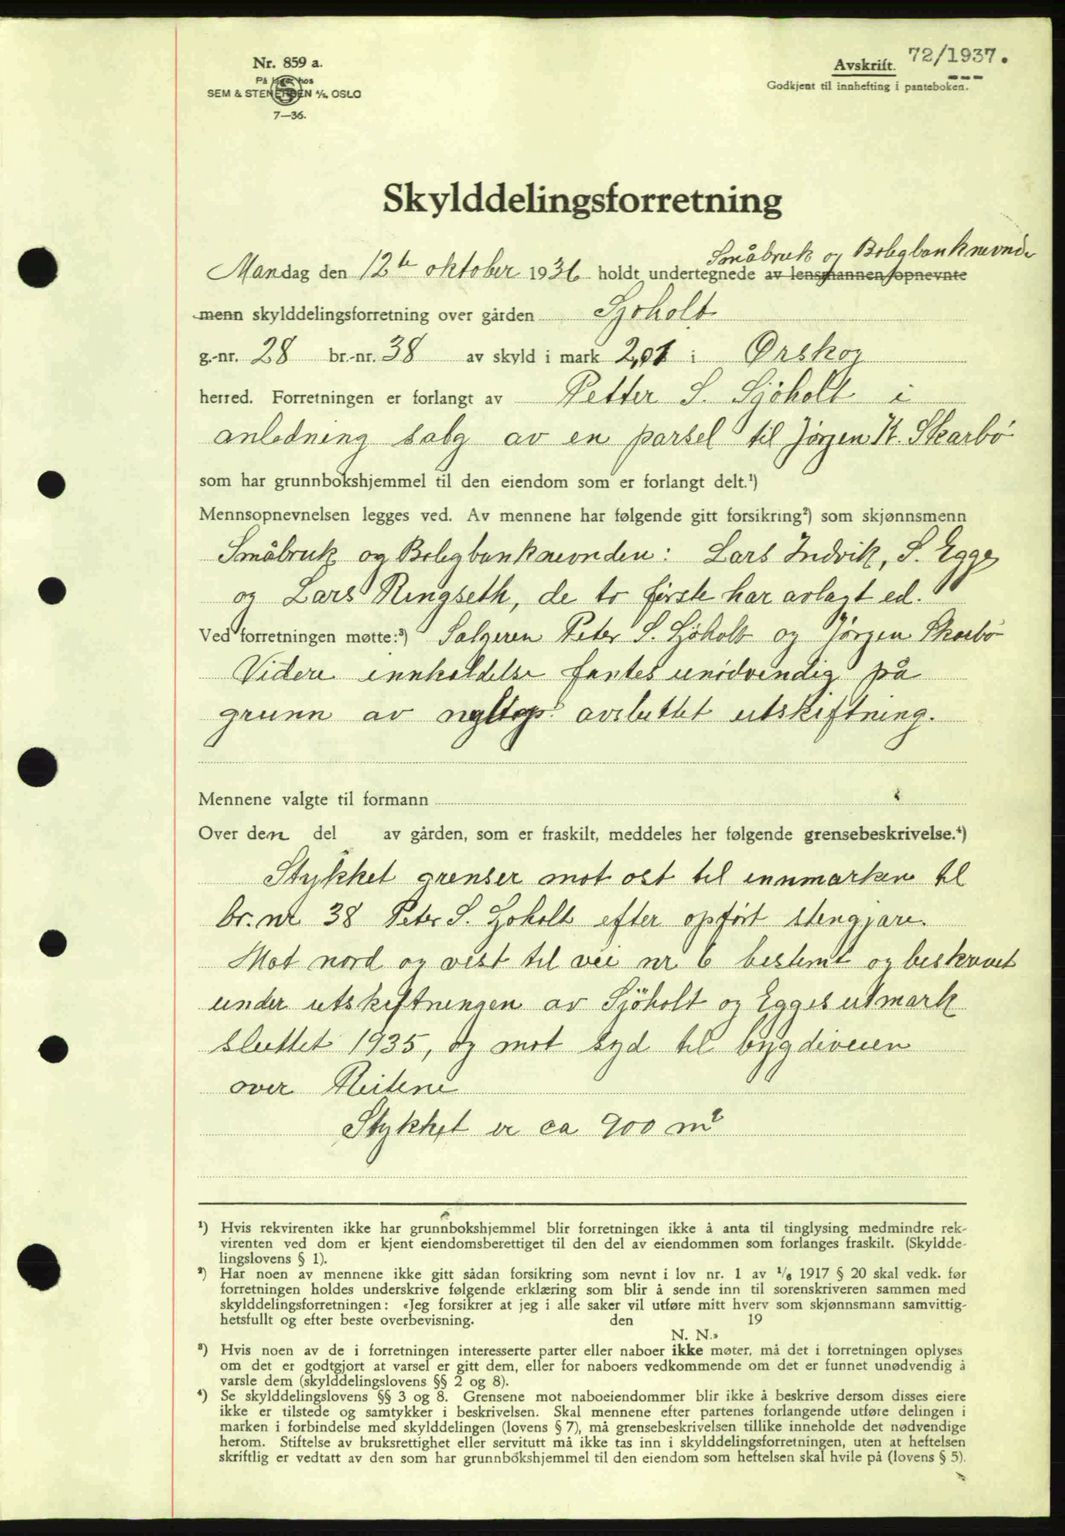 Nr. 859 a.
På lager hos
SEM & STENERSEN A/S, OSLO
7—36.
Avskrift. 72/1937.
Godkjent til innhefting i panteboken.
Skylddelingsforretning
Småbruk og Boligbanknevnden
Mandag den 12te oktober 1936 holdt undertegnede av lensmannen opnevnte
menn skylddelingsforretning over gården Sjøholt
g.-nr. 28 br.-nr. 38 av skyld i mark 2,01 i Ørskog
herred. Forretningen er forlangt av Petter S. Sjöholt i
anledning salg av en parsel til Jørgen K. Skarbö
som har grunnbokshjemmel til den eiendom som er forlangt delt.¹)
Mennsopnevnelsen legges ved. Av mennene har følgende gitt forsikring²) som skjønnsmenn
Småbruk og Boligbanknevnden: Lars Indvik, S. Egge
og Lars Ringseth, de to første har avlagt ed.
Ved forretningen møtte:³) Selgeren Peter S. Sjöholt og Jørgen Skarbö
Videre innkaldelse fantes unødvendig på
grunn av avsluttet utskiftning.
Mennene valgte til formann
Over den del av gården, som er fraskilt, meddeles her følgende grensebeskrivelse.⁴)
Stykket grenser mot ost til innmarken til
br.nr 38 Peter S. Sjoholt efter opført stengjære.
Mot nord og vest til vei nr 6 bestemt og beskrevet
under utskiftningen av Sjöholt og Egges utmark
sluttet 1935, og mot syd til bygdiveien
over Reitene
Stykket er ca 900 m²
¹) Hvis rekvirenten ikke har grunnbokshjemmel blir forretningen ikke å anta til tinglysing medmindre rek-
virenten ved dom er kjent eiendomsberettiget til den del av eiendommen som forlanges fraskilt. (Skyldde-
lingslovens § 1).
²) Har noen av mennene ikke gitt sådan forsikring som nevnt i lov nr. 1 av ¹/₆ 1917 § 20 skal vedk. før
forretningen holdes underskrive følgende erklæring som blir å sende inn til sorenskriveren sammen med
skylddelingsforretningen: «Jeg forsikrer at jeg i alle saker vil utføre mitt hverv som skjønnsmann samvittig-
hetsfullt og efter beste overbevisning. den 19
N. N.»
³) Hvis noen av de i forretningen interesserte parter eller naboer ikke møter, må det i forretningen oplyses
om det er godtgjort at varsel er gitt dem, eller for naboers vedkommende om det er funnet unødvendig å
varsle dem (skylddelingslovens §§ 2 og 8).
⁴) Se skylddelingslovens §§ 3 og 8. Grensene mot naboeiendommer blir ikke å beskrive dersom disses eiere
ikke er tilstede og samtykker i beskrivelsen. Skal mennene efter partenes forlangende utføre delingen i
marken i forbindelse med skylddelingen (lovens § 7), må grensebeskrivelsen tillike inneholde det nødvendige
herom. Stiftelse av bruksrettighet eller servitutt må ikke tas inn i skylddelingsforretningen, uten at heftelsen
skriftlig er vedtatt av den som har grunnbokshjemmel til den eiendom som heftelsen skal hvile på (lovens § 5).